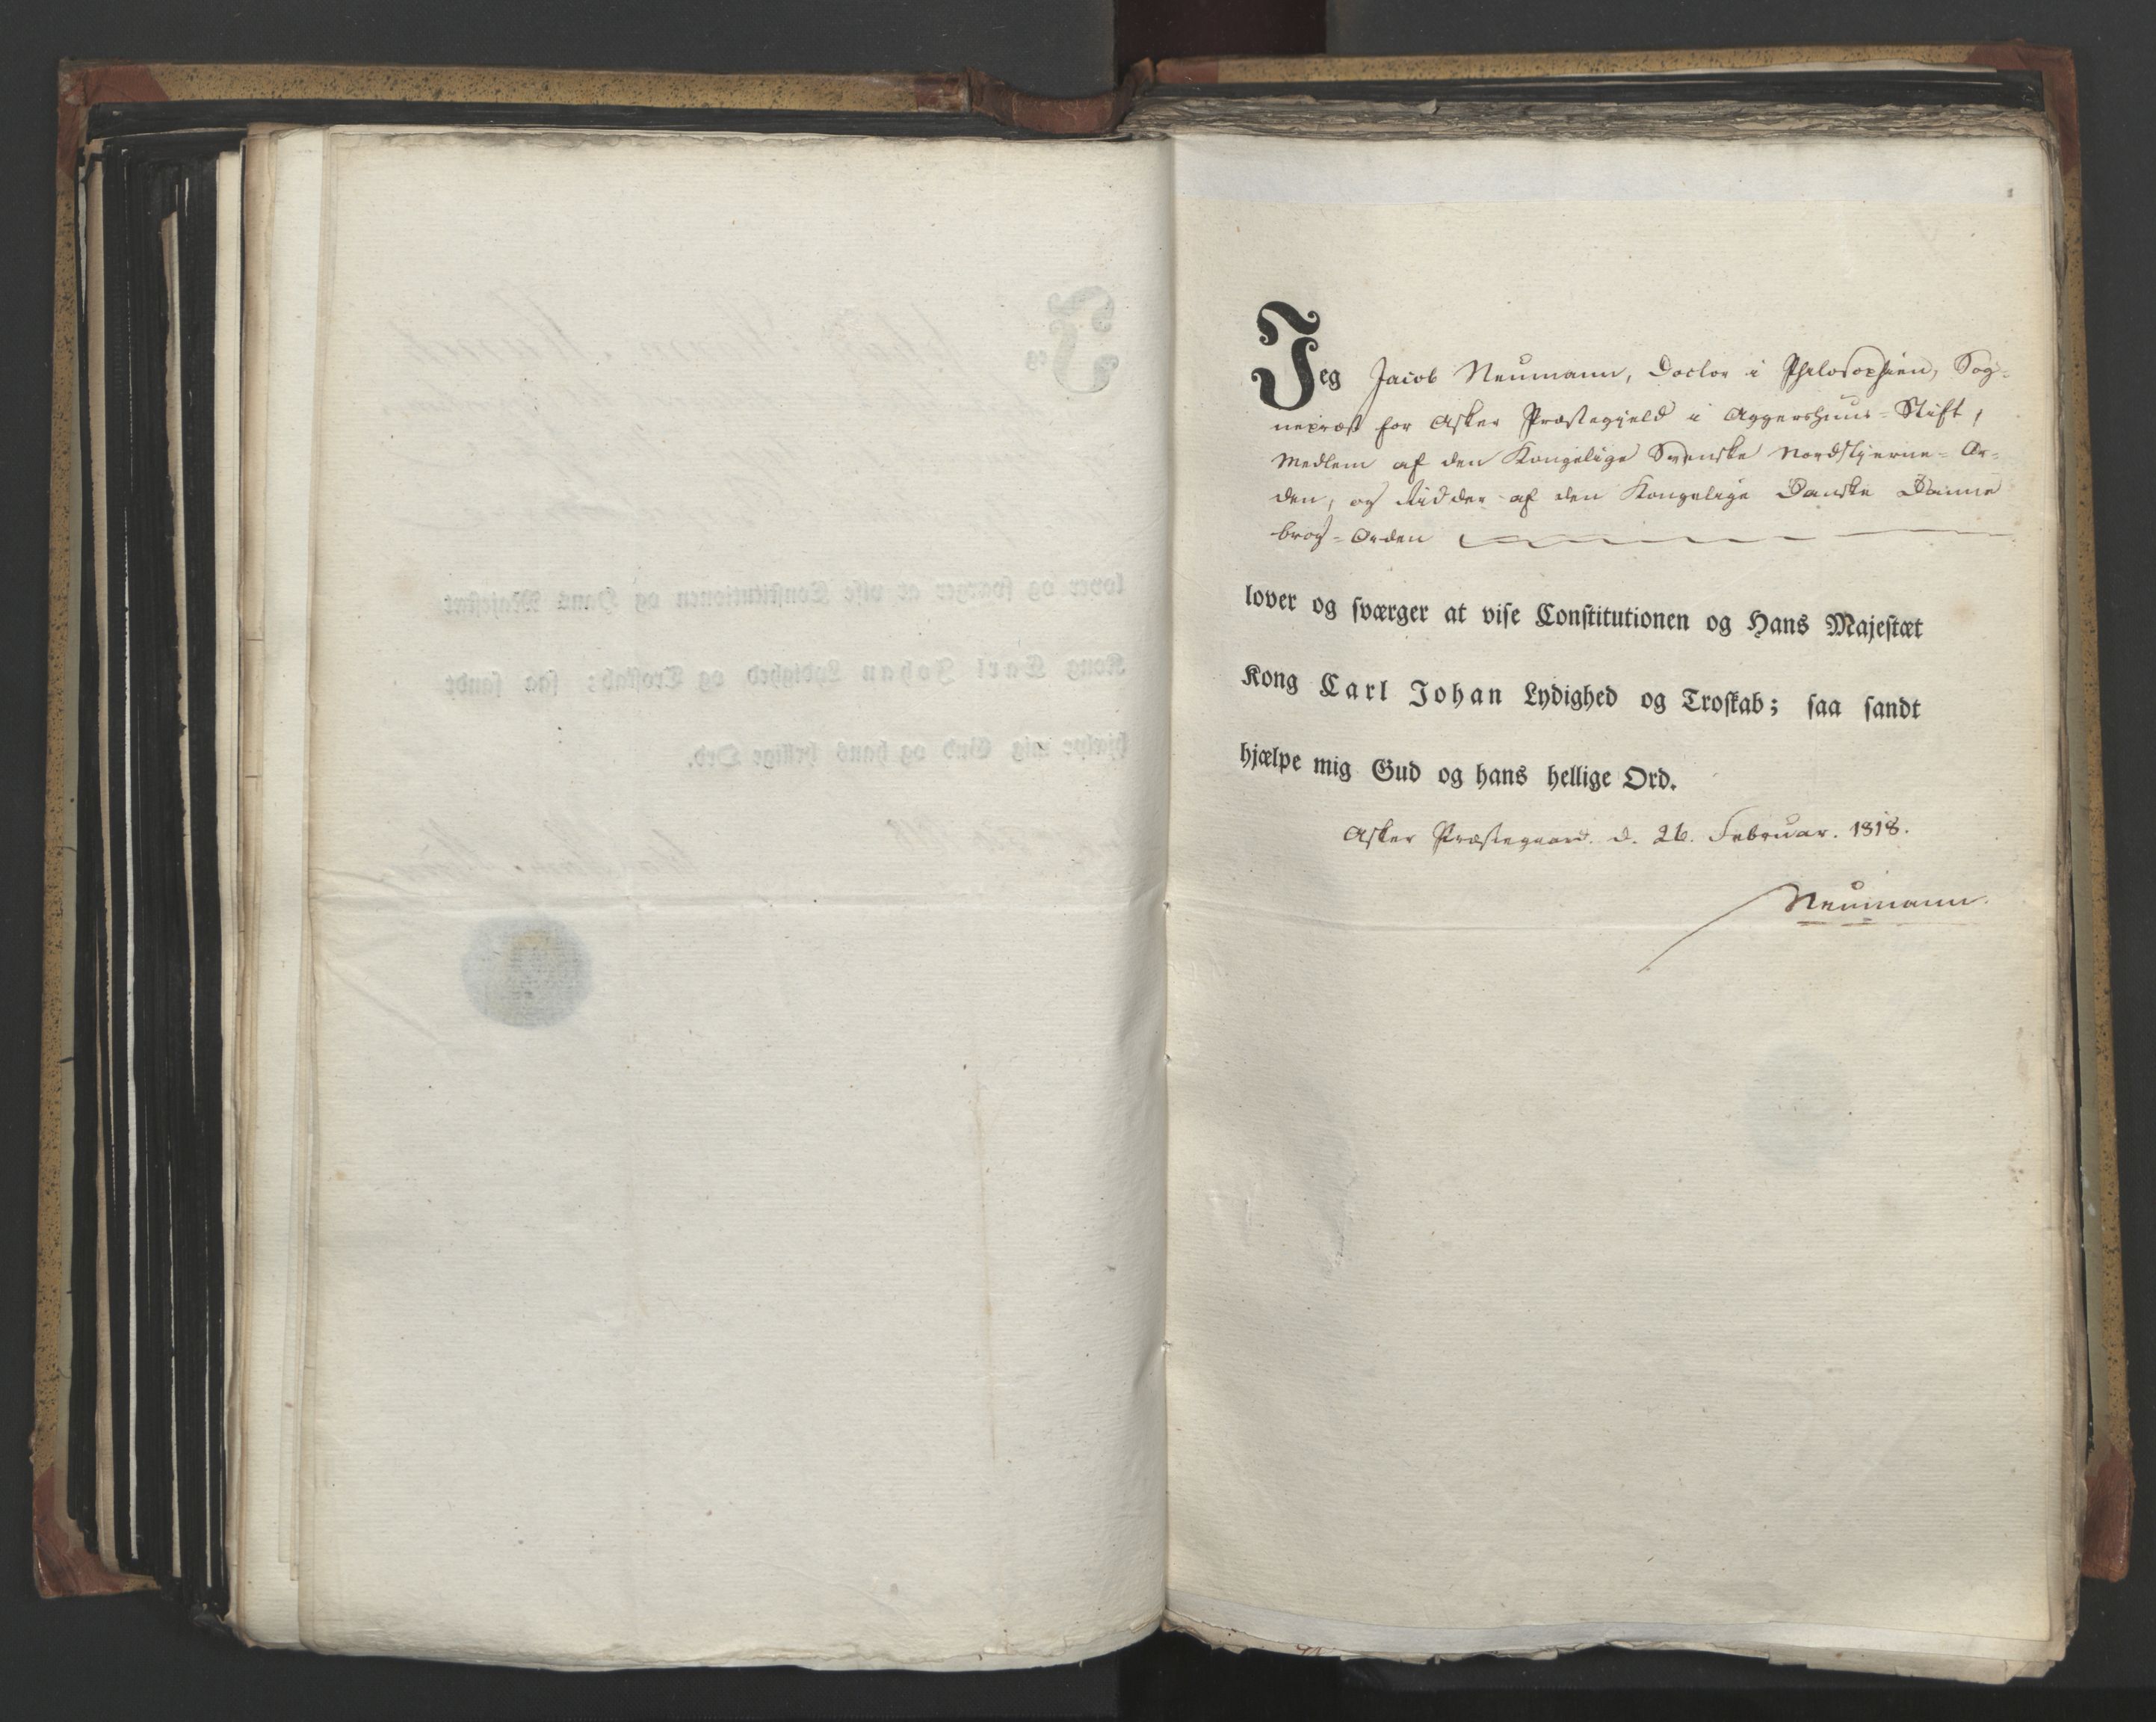 Jeg Jacob Neumann, Doctor i Philosophien, Sog-
nepræst for Asker Præstegjeld i Aggershuus-Stift,
Medlem af den Kongelige Svenske Nordstjerne-Or-
den, og Ridder af den Kongelige Danske Danne
brog-Orden
lover og sværger at vise Constitutionen og Hans Majestæt
Kong Carl Johan Lydighed og Troskab; saa sandt
hjælpe mig Gud og hans hellige Ord.
Asker Præstegaard. d. 26. Februar. 1818.
Neumann.